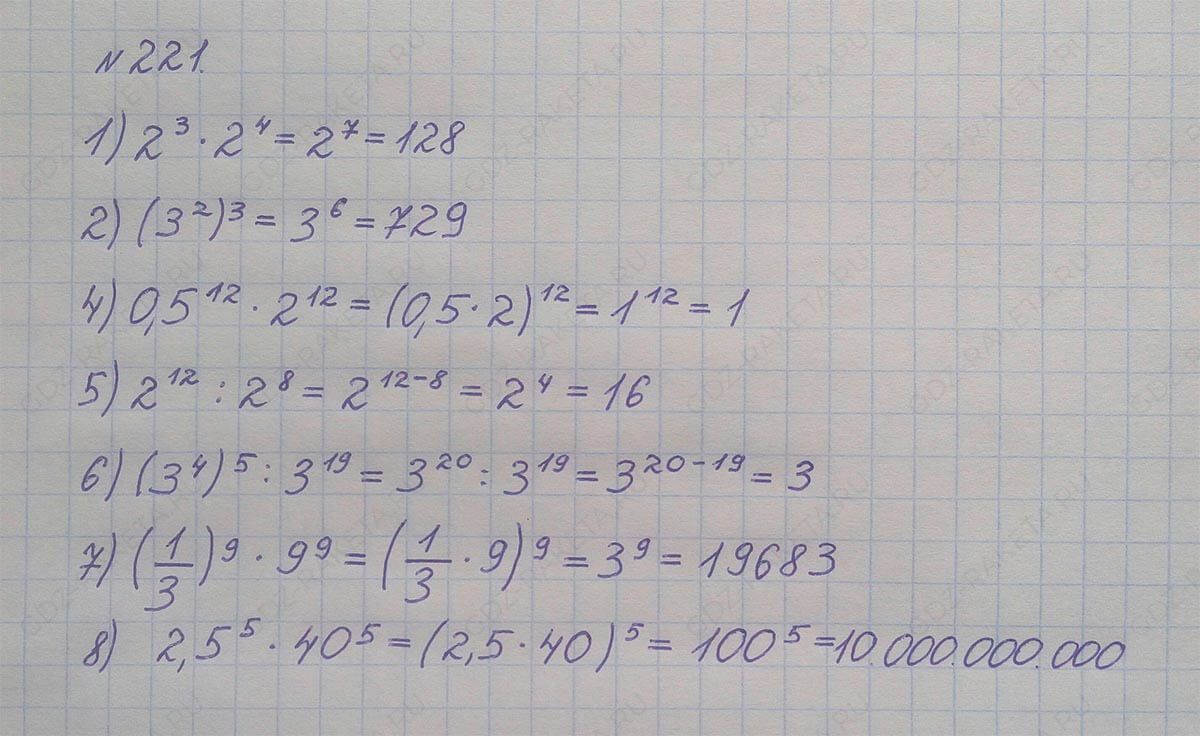 № 221.
1) 2³ · 2⁴ = 2⁷ = 128
2) (3²)³ = 3⁶ = 729
4) 0,5¹² · 2¹² = (0,5 · 2)¹² = 1¹² = 1
5) 2¹² : 2⁸ = 2¹²⁻⁸ = 2⁴ = 16
6) (3⁴)⁵ : 3¹⁹ = 3²⁰ : 3¹⁹ = 3²⁰⁻¹⁹ = 3
7) (1/3)⁹ · 9⁹ = (1/3 · 9)⁹ = 3⁹ = 19683
8) 2,5⁵ · 40⁵ = (2,5 · 40)⁵ = 100⁵ = 10.000.000.000
GDZ-RAKETA.RU